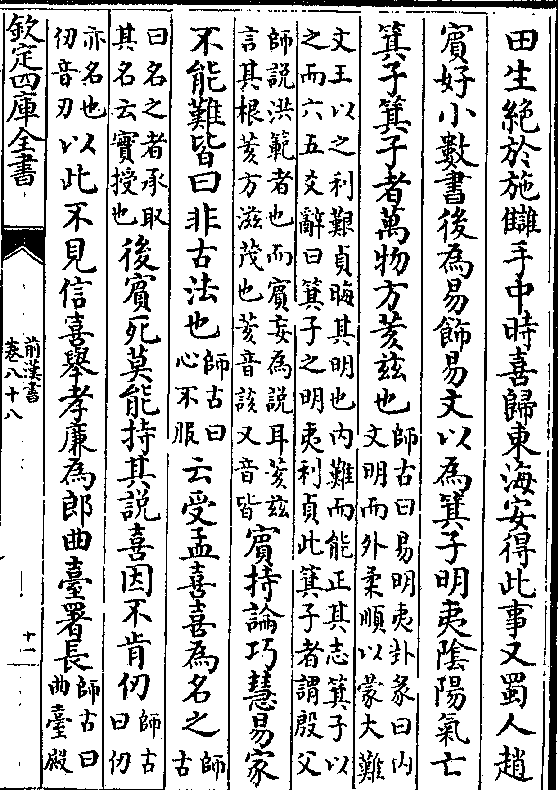 田生絶於施讎手中時喜歸東海安得此事又蜀人趙
賓好小數書後為易飾易文以為箕子明夷隂陽氣亡
箕子箕子者萬物方荄兹也師古曰易明夷卦彖曰内
文明而外柔順以蒙大難
文王以之利艱貞晦其明也内難而能正其志箕子以
之而六五爻辭曰箕子之明夷利貞此箕子者謂殷父
師説洪範者也而賓妄為説耳荄兹
言其根荄方滋茂也荄音該又音皆賓持論巧慧易家
不能難皆曰非古法也師古曰
心不服云受孟喜喜為名之師
古
曰名之者承取
其名云實授也後賓死莫能持其説喜因不肯仞師古
曰仞
亦名也
仞音刃以此不見信喜舉孝廉為郎曲臺署長師古曰
曲臺殿
欽定四庫全書
前漢書
卷八十八
十一